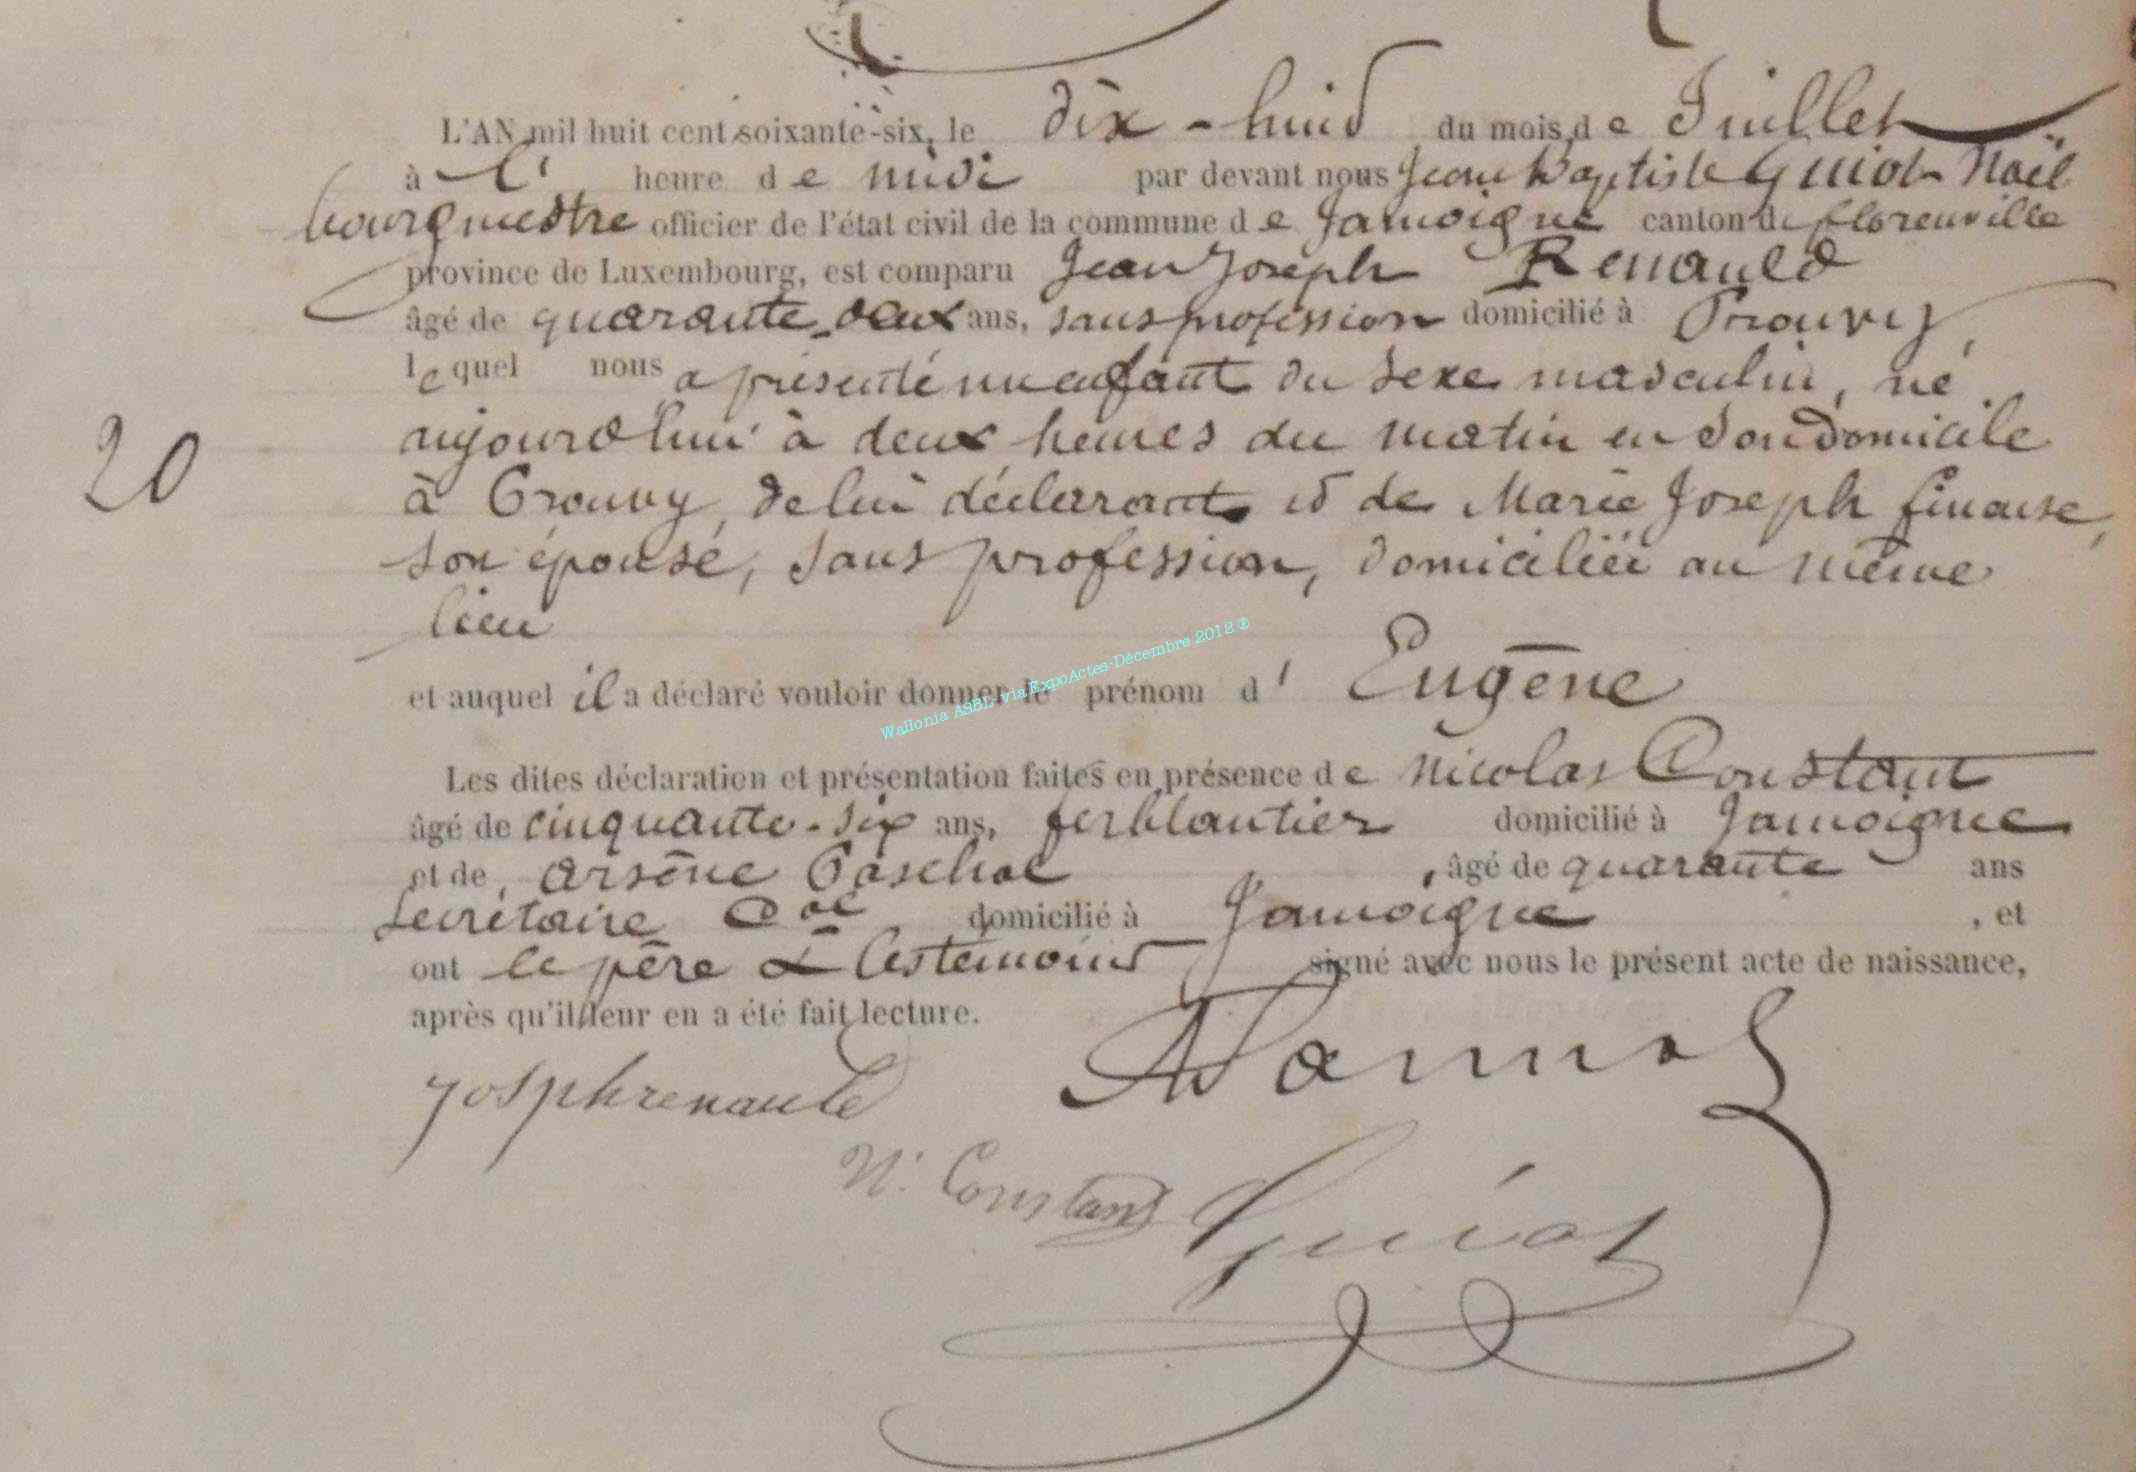 L'AN mil huit cent soixante-six, le dix-huit du mois de Juillet
à l' heure de midi par devant nous Jean Baptiste Guiot Noël
bourgmestre officier de l'état civil de la commune de Jamoigne canton de florenville
province de Luxembourg, est comparu Jean Joseph Renauld
âgé de quarante-deux ans, sans profession domicilié à Prouvy,
lequel nous a présenté un enfant du sexe masculin, né
aujourd'hui à deux heures du matin en son domicile
20
à Prouvy, de lui déclarant et de Marie Joseph finause,
son épouse, sans profession, domiciliée au même
lieu
et auquel il a déclaré vouloir donner le prénom d' Eugène
Wallonia ASBL via ExpoActes-Décembre 2012 ®
Les dites déclaration et présentation faites en présence de Nicolas Constant
âgé de cinquante-six ans, ferblantier domicilié à Jamoigne
et de, Arsène Paschal, âgé de quarante ans
Secrétaire Cal domicilié à Jamoigne, et
ont le père & les témoins signé avec nous le présent acte de naissance,
après qu'il leur en a été fait lecture.
Josphrenauld
N. Constant
Guiot